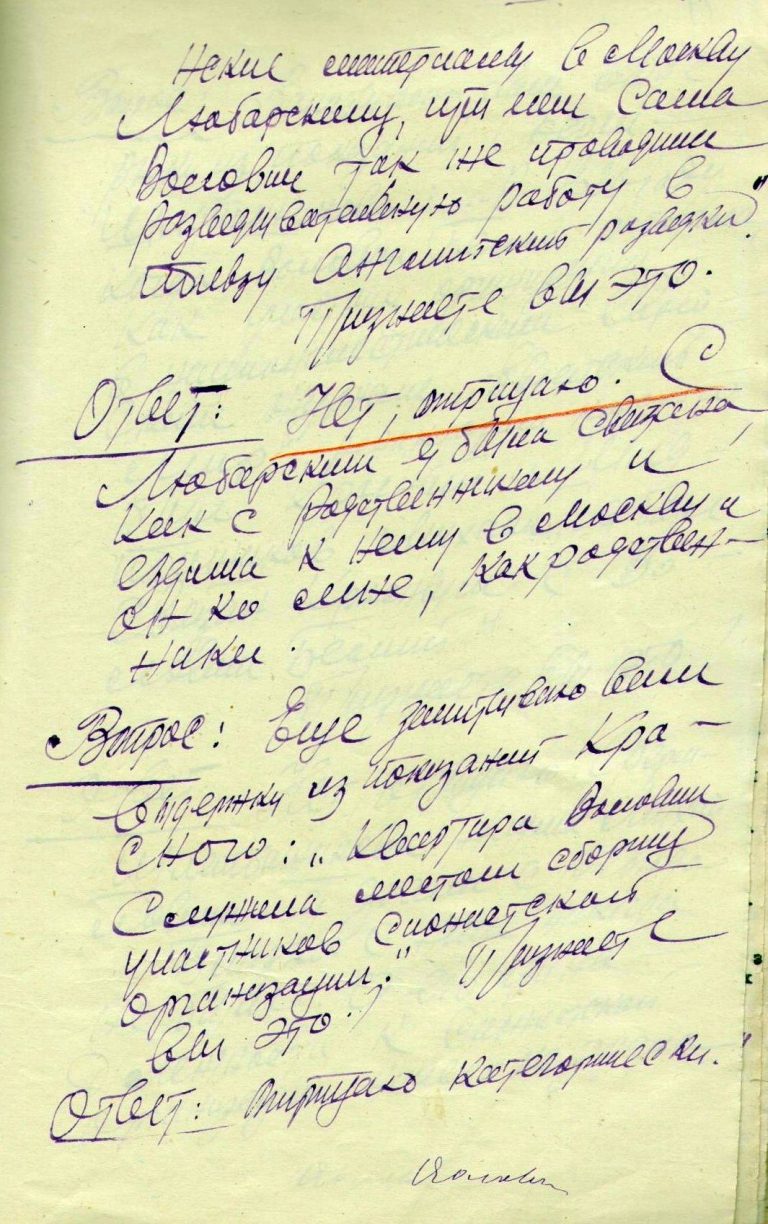 ские материалы в Москву
Любарскому, при нем сама
Волович так же проводила
разведывательную работу в
пользу Английской разведки".
Признаете вы это.
Ответ: Нет, отрицаю. С
Любарским я была связана,
как с родственником и
ездила к нему в Москву и
он ко мне, как родствен-
ники.
Вопрос: Еще зачитываю вам
выдержку из показаний Кра-
сного: „Квартира Волович
служила местом сборищ
участников Сионистской
организации." Признаете
вы это.
Ответ: отрицаю категорически."